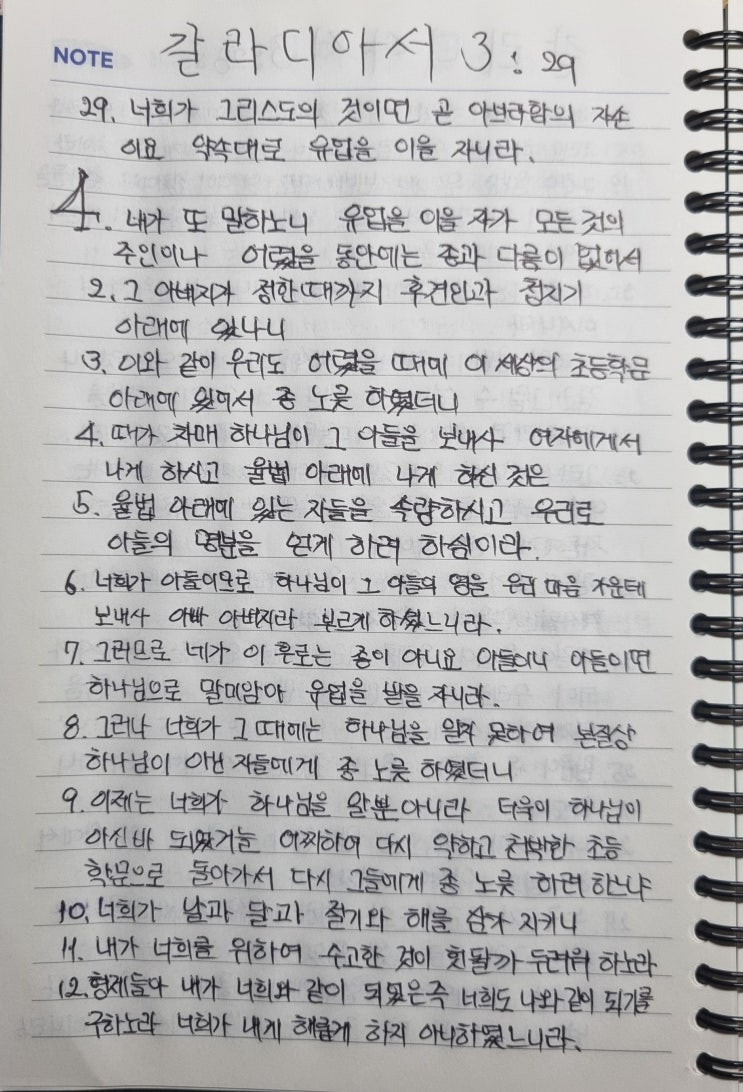 NOTE 갈라디아서 3:29
29. 너희가 그리스도의 것이면 곧 아브라함의 자손
이요 약속대로 유업을 이을 자니라.
4. 내가 또 말하노니 유업을 이을 자가 모든 것의
주인이나 어렸을 동안에는 종과 다름이 없어서
2. 그 아버지가 정한 때까지 후견인과 청지기
아래에 있나니
3. 이와 같이 우리도 어렸을 때에 이 세상의 초등학문
아래에 있어서 종 노릇 하였더니
4. 때가 차매 하나님이 그 아들을 보내사 여자에게서
나게 하시고 율법 아래에 나게 하신 것은
5. 율법 아래에 있는 자들을 속량하시고 우리로
아들의 명분을 얻게 하려 하심이라.
6. 너희가 아들이므로 하나님이 그 아들의 영을 우리 마음 가운데
보내사 아빠 아버지라 부르게 하셨느니라.
7. 그러므로 네가 이 후로는 종이 아니요 아들이니 아들이면
하나님으로 말미암아 유업을 받을 자니라.
8. 그러나 너희가 그 때에는 하나님을 알지 못하여 본질상
하나님이 아닌 자들에게 종 노릇 하였더니
9. 이제는 너희가 하나님을 알뿐 아니라 더욱이 하나님이
아신바 되었거늘 어찌하여 다시 약하고 천박한 초등
학문으로 돌아가서 다시 그들에게 종 노릇 하려 하느냐
10. 너희가 날과 달과 절기와 해를 삼가 지키니
11. 내가 너희를 위하여 수고한 것이 헛될까 두려워 하노라
12. 형제들아 내가 너희와 같이 되었은즉 너희도 나와 같이 되기를
구하노라 너희가 내게 해롭게 하지 아니하였느니라.